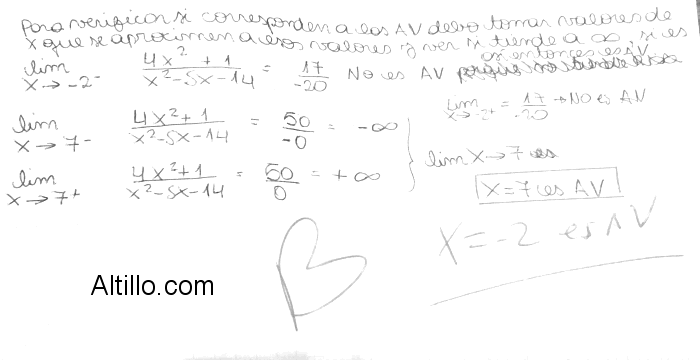 Para verificar si corresponden a los AV debo tomar valores de
x que se aproximen a esos valores y ver si tiende a ∞, si es
así entonces es AV
lim x→-2- 4x²+1 / x²-5x-14 = 17/-20 No es AV
lim x→-2+ = 17/-20 → NO es AV
lim x→7- 4x²+1 / x²-5x-14 = 50/-0 = -∞
lim x→7+ 4x²+1 / x²-5x-14 = 50/0 = +∞
lim x→7 es
x=7 es AV
X=-2 es AV
B
Altillo.com